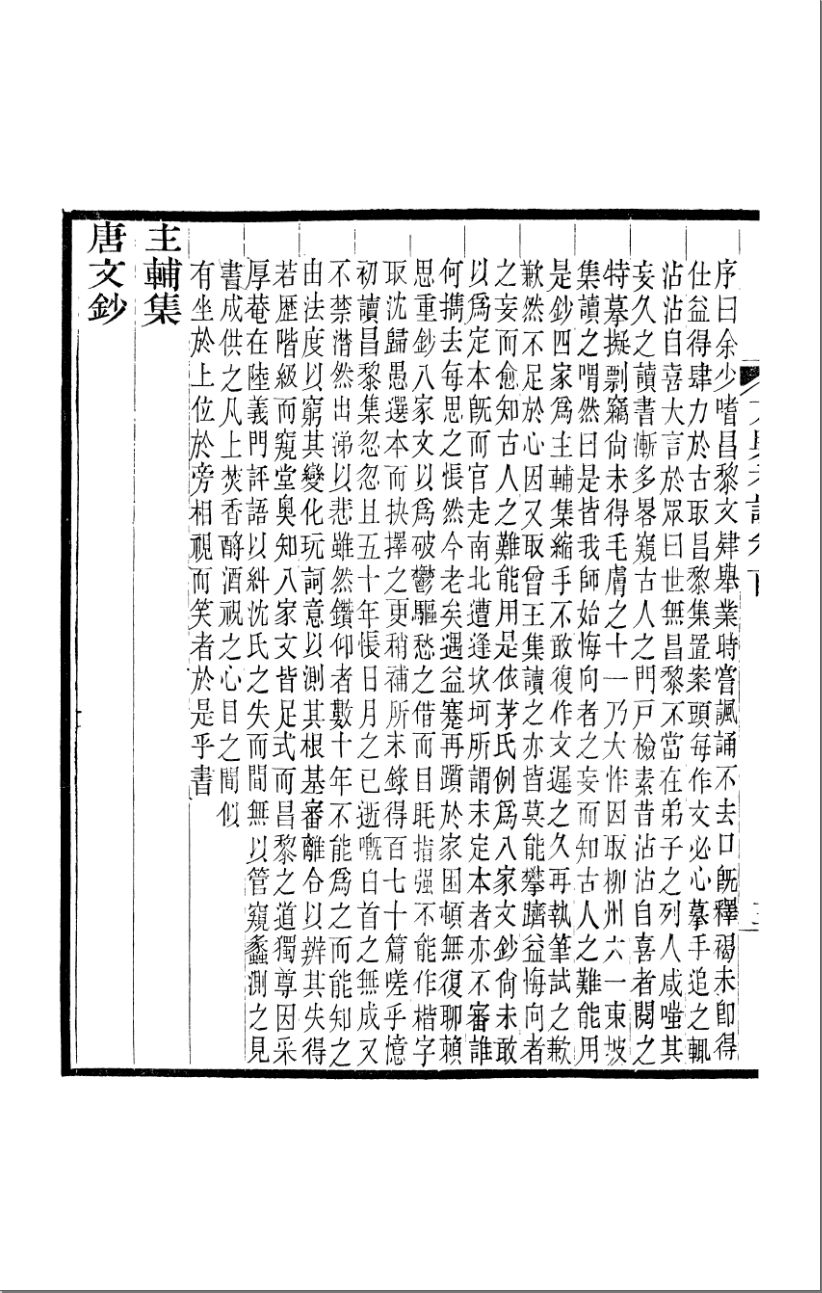 序曰余少嗜昌黎文肄舉業時嘗諷誦不去口旣釋褐未卽得
仕益得肆力於古取昌黎集置案頭每作文必心摹手追之輒
沾沾自喜大言於眾曰世無昌黎不當在弟子之列人咸嗤其
妄久之讀書漸多畧窺古人之門戸檢素昔沾沾自喜者閱之
特摹擬剽竊尙未得毛膚之十一乃大怍因取柳州六一東坡
集讀之喟然曰是皆我師始悔向者之妄而知古人之難能用
是鈔四家爲主輔集縮手不敢復作文遲之久再執筆試之歉
歉然不足於心因又取曾王集讀之亦皆莫能攀躋益悔向者
之妄而愈知古人之難能用是依茅氏例爲八家文鈔尙未敢
以爲定本旣而官走南北遭逢坎坷所謂未定本者亦不審誰
何攜去每思之悵然今老矣遇益蹇再躓於家困頓無復聊賴
思重鈔八家文以爲破鬱驅愁之借而目眊指强不能作楷字
取沈歸愚選本而抉擇之更稍補所未錄得百七十篇嗟乎憶
初讀昌黎集忽忽且五十年悵日月之已逝嘅白首之無成又
不禁潸然出涕以悲雖然鑽仰者數十年不能爲之而能知之
由法度以窮其變化玩詞意以測其根基審離合以辨其失得
若歷階級而窺堂奧知八家文皆足式而昌黎之道獨尊因采
厚菴在陸義門評語以糾沈氏之失而間無以管窺蠡測之見
書成供之凡上焚香酹酒視之心目之間似
有坐於上位於旁相視而笑者於是乎書
主輔集
唐文鈔